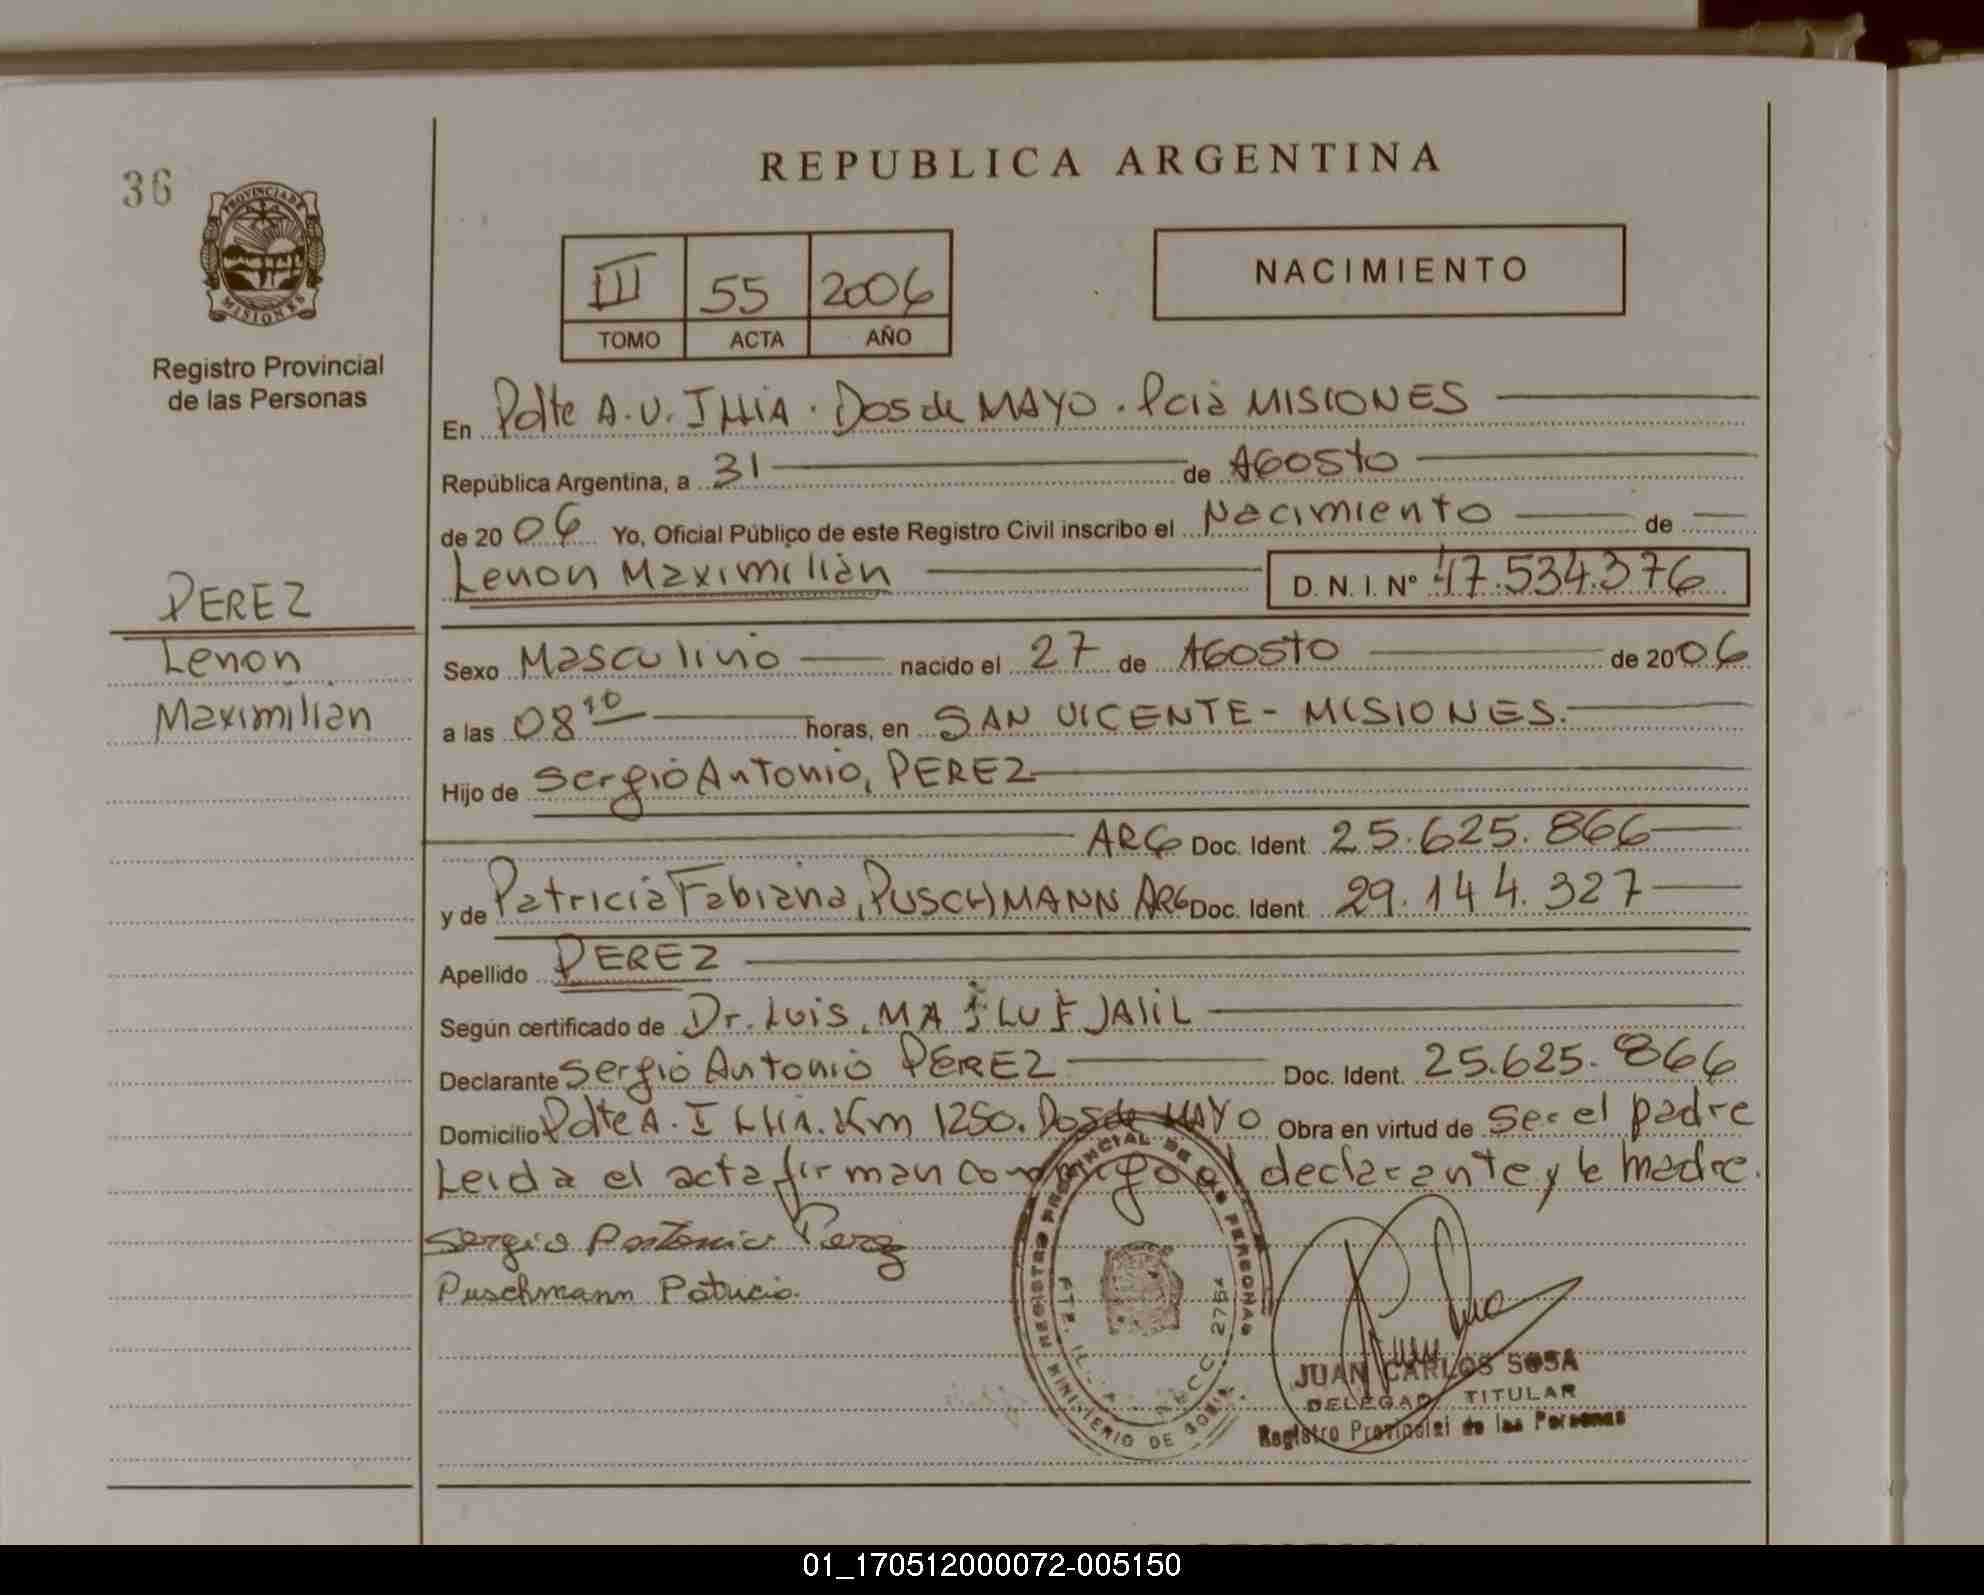 36
PROVINCIA DE
MISIONES
Registro Provincial
de las Personas
PEREZ
Lenon
Maximilian
REPUBLICA ARGENTINA
III 55 2006
TOMO ACTA AÑO
NACIMIENTO
En Pdte A.U. ILLIA. Dos de MAYO. Pcia MISIONES
República Argentina, a 31 de AGOSTO
de 2006 Yo, Oficial Público de este Registro Civil inscribo el Nacimiento de
Lenon Maximilian D. N. I. Nº 47.534.376
Sexo Masculino nacido el 27 de AGOSTO de 2006
a las 08 10 horas, en SAN VICENTE - MISIONES.
Hijo de Sergio Antonio, PEREZ
ARG Doc. Ident. 25.625.866
y de Patricia Fabiana, PUSCHMANN ARG Doc. Ident. 29.144.327
Apellido PEREZ
Según certificado de Dr. Luis. MAJLUF JALIL
Declarante Sergio Antonio PEREZ Doc. Ident. 25.625.866
Domicilio Pdte A. ILLIA. Km 1250. Dos de MAYO Obra en virtud de Ser el padre
Leida el acta firman conmigo el declarante y la madre.
Sergio Antonio Perez
Puschmann Patricia.
REGISTRO PROVINCIAL DE LAS PERSONAS
MINISTERIO DE
JUAN CARLOS SOSA
DELEGADO TITULAR
Registro Provincial de las Personas
01_170512000072-005150